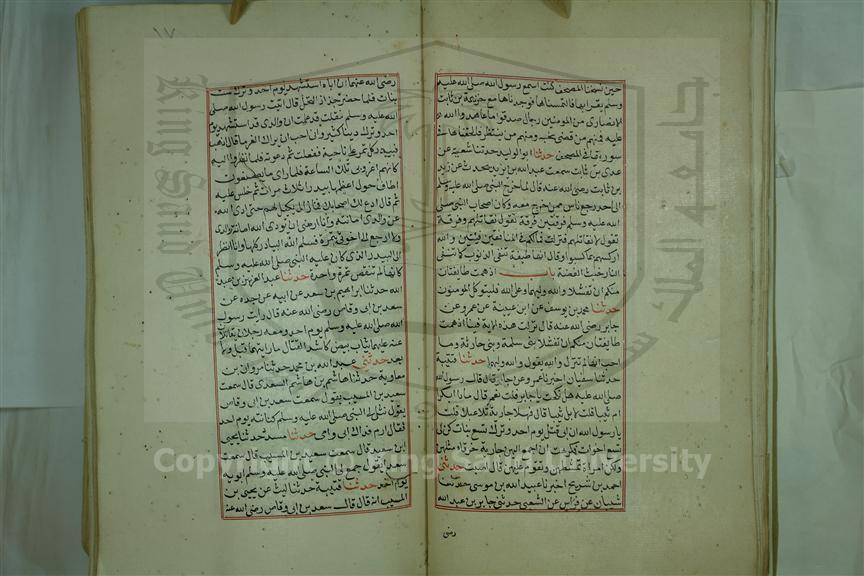 ١٧
حين نسخنا المصحف كنت اسمع رسول الله صلى الله عليه
وسلم يقرا بها فالتمسناها فوجدناها مع خزيمة بن ثابت
الانصاري من المومنين رجال صدقوا ما عاهدوا الله
عليه فمنهم من قضى نحبه ومنهم من ينتظر فالحقناها في
سورتها في المصحف حدثنا ابو الوليد حدثنا شعبة عن
عدي بن ثابت سمعت عبد الله بن يزيد يحدث عن زيد
بن ثابت رضي الله عنه قال لما خرج النبي صلى الله عليه وسلم
الى احد رجع ناس ممن خرج معه وكان اصحاب النبي صلى
الله عليه وسلم فرقتين فرقة تقول نقاتلهم وفرقة
تقول لا نقاتلهم فنزلت فما لكم في المنافقين فئتين والله
اركسهم بما كسبوا وقال انها طيبة تنفي الذنوب كما تنفي
النار خبث الفضة باب اذ همت طايفتان
منكم ان تفشلا والله وليهما وعلى الله فليتوكل المومنون
حدثنا محمد بن يوسف عن ابن عيينة عن عمرو عن
جابر رضي الله عنه قال نزلت هذه الاية فينا اذ همت
طايفتان منكم ان تفشلا بني سلمة وبني حارثة وما
احب انها لم تنزل والله يقول والله وليهما حدثنا قتيبة
حدثنا سفيان اخبرنا عمرو عن جابر قال قال رسول الله
صلى الله عليه هل نكحت يا جابر قلت نعم قال ماذا ابكرا
ام ثيبا قلت لا بل ثيبا قال فهلا جارية تلاعبك قلت
يا رسول الله ان ابي قتل يوم احد وترك تسع بنات كن لي
تسع اخوات فكرهت ان اجمع اليهن جارية خرقاء مثلهن
ولكن امراة تمشطهن وتقوم عليهن قال اصبت حدثني
احمد بن شريح اخبرنا عبيد الله بن موسى حدثنا
شيبان عن فراس عن الشعبي حدثني جابر بن عبد الله
رضي
رضي الله عنهما ان اباه استشهد يوم احد وترك ست
بنات فلما حضر جذاذ النخل قال اتيت رسول الله صلى
الله عليه وسلم فقلت قد علمت ان والدي قد استشهد يوم
احد وترك دينا كثيرا وان احب ان يراك الغرما قال اذهب
فبيدر كل تمر على ناحية ففعلت ثم دعوته فلما نظروا اليه
كانهم اغروا بي تلك الساعة فلما راى ما يصنعون
اطاف حول اعظمها بيدرا ثلاث مرات ثم جلس عليه
ثم قال ادع لك اصحابك فما زال يكيل لهم حتى ادى الله
عن والدي امانته وانا ارضى ان يودي الله امانة والدي
ولا ارجع الى اخواتي بتمرة فسلم الله البيادر كلها وانا انظر
الى البيدر الذي كان عليه النبي صلى الله عليه وسلم
كانها لم تنقص تمرة واحدة حدثنا عبد العزيز بن عبد
الله حدثنا ابراهيم بن سعد عن ابيه عن جده عن
سعد بن ابي وقاص رضي الله عنه قال رايت رسول
الله صلى الله عليه وسلم يوم احد ومعه رجلان يقاتلان
عنه عليهما ثياب بيض كاشد القتال ما رايتهما قبل ولا
بعد حدثني عبد الله بن محمد حدثنا مروان بن
معاوية حدثنا هاشم بن هاشم السعدي قال سمعت
سعيد بن المسيب يقول سمعت سعد بن ابي وقاص
يقول نثل لي النبي صلى الله عليه وسلم كنانته يوم احد
فقال ارم فداك ابي وامي حدثنا مسدد حدثنا يحيى
ابن سعيد قال سمعت سعيد بن المسيب قال سمعت
سعدا يقول جمع لي النبي صلى الله عليه وسلم ابويه
يوم احد حدثنا قتيبة حدثنا ليث عن يحيى بن
المسيب انه قال قال سعد بن ابي وقاص رضي الله عنه
جامعة الملك
King Saud Univ
Copyright © King Saud University